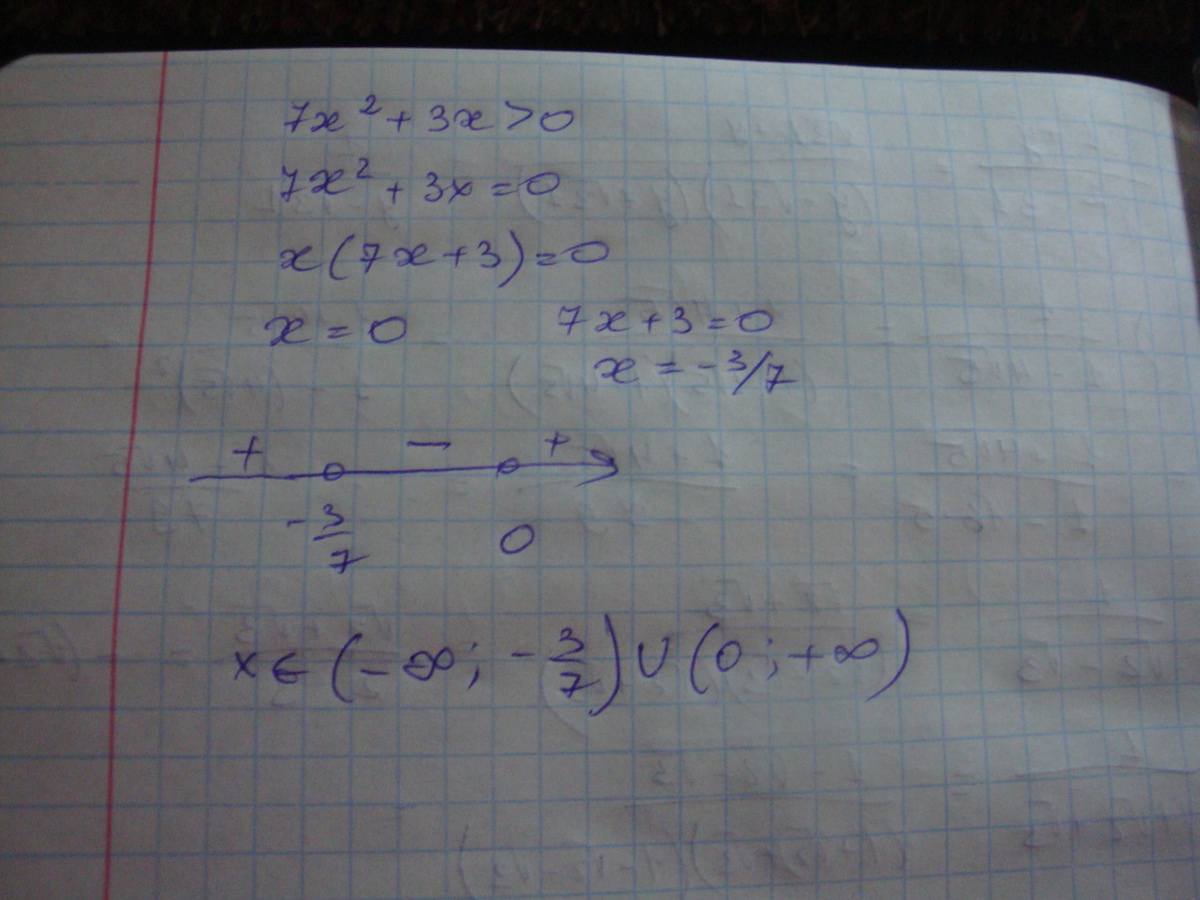 7x² + 3x > 0
7x² + 3x = 0
x(7x + 3) = 0
x = 0 7x + 3 = 0
x = -3/7
+ − +
-3/7 0
x ∈ (-∞; -3/7) ∪ (0; +∞)